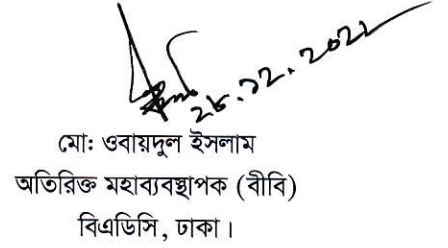 ২৮.১২.২০২২
মো: ওবায়দুল ইসলাম
অতিরিক্ত মহাব্যবস্থাপক (বীবি)
বিএডিসি, ঢাকা।